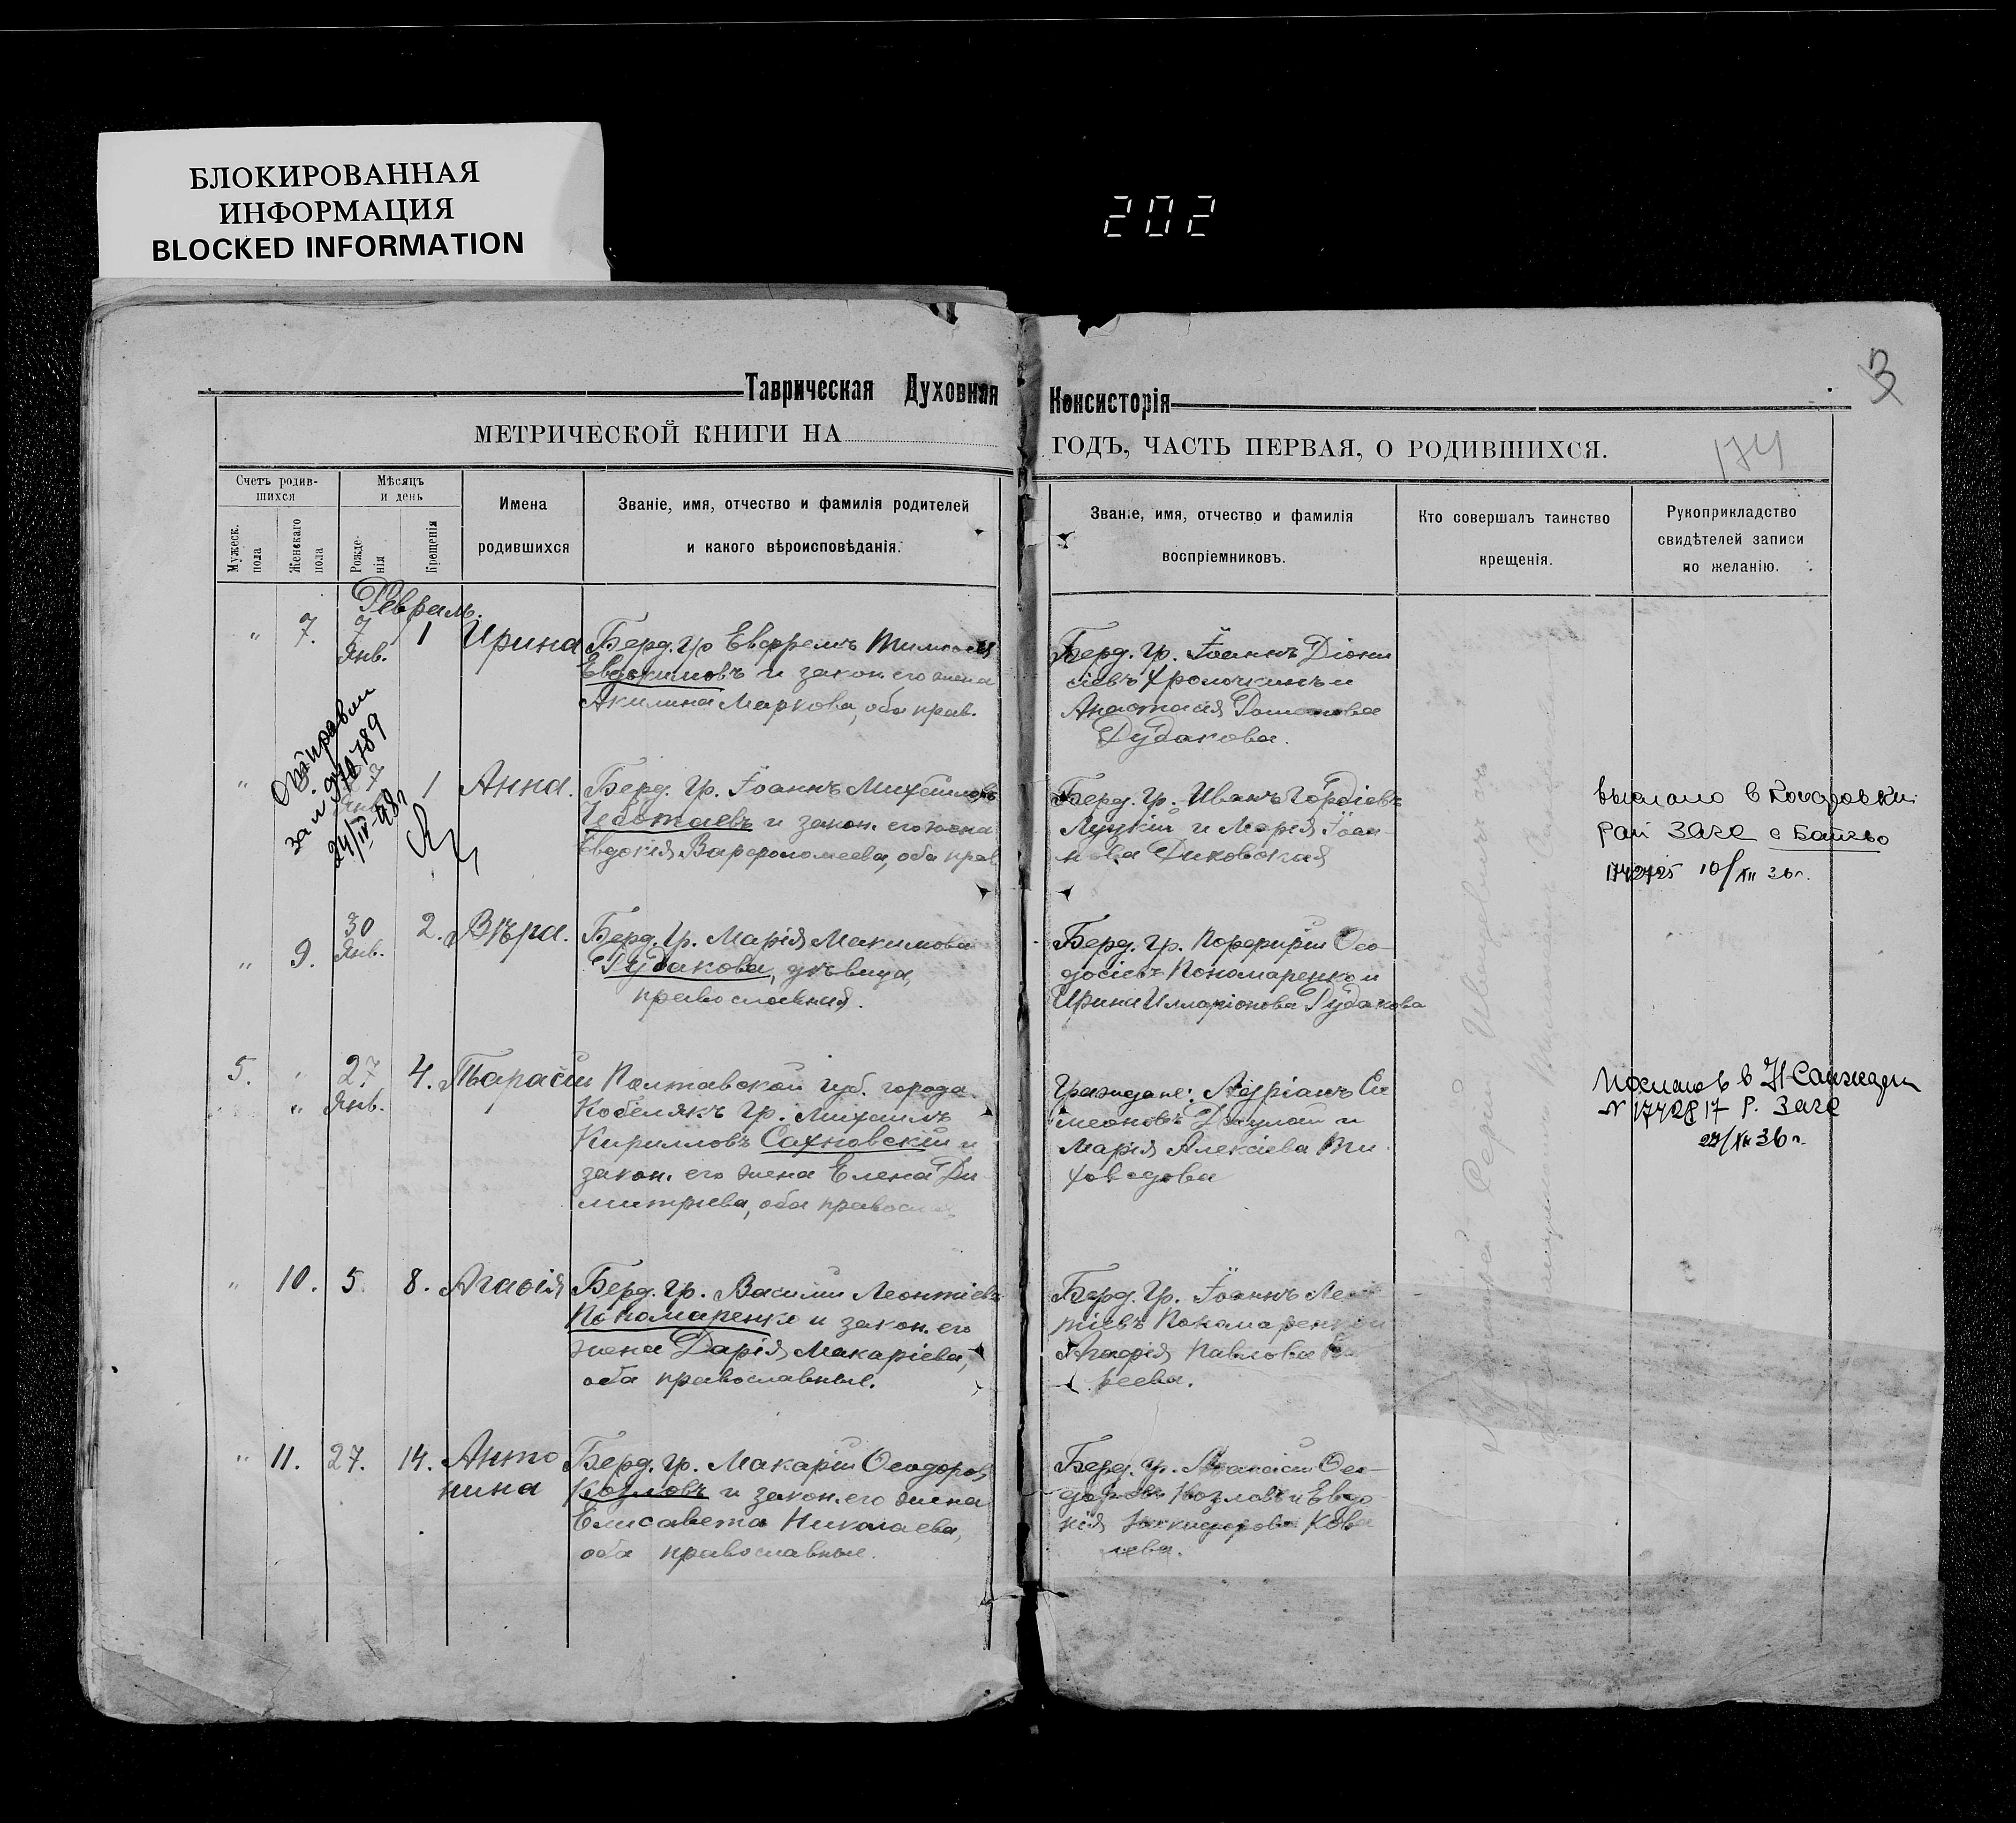 БЛОКИРОВАННАЯ
ИНФОРМАЦИЯ
BLOCKED INFORMATION
202
3
Таврическая Духовная Консисторія
МЕТРИЧЕСКОЙ КНИГИ НА ГОДЪ, ЧАСТЬ ПЕРВАЯ, О РОДИВШИХСЯ.
174
Счетъ родив-
шихся
Мужеск.
пола
Женскаго
пола
Мѣсяцъ
и день
Рожде-
нія
Крещенія
Имена
родившихся
Званіе, имя, отчество и фамилія родителей
и какого вѣроисповѣданія.
Званіе, имя, отчество и фамилія
воспріемниковъ.
Кто совершалъ таинство
крещенія.
Рукоприкладство
свидѣтелей записи
по желанію.
Февраль.
" 7. 7 1 Ирина
Янв.
Берд. гр. Евфремъ
Евдокимовъ и закон. его жена
Акилина Маркова, оба прав.
Берд. гр. Іоаннъ Діони
сіевъ и
Анастасія
Дудакова.
Отправлен
за №
24/IV-
" 1 Анна.
Берд. гр. Іоаннъ Михаиловъ
и закон. его жена
Евдокія Варфоломеева, оба прав
Берд. гр. Иванъ Гордіевъ
Луцкій и Марія Іоан-
нова Диковская
выслано в
рай загс с
10/XII 36 г.
" 9. 30 2. Вѣра.
Янв.
Берд. гр. Марія Макимова
Дудакова, дѣвица,
православная.
Берд. гр. Порфирій Ѳео-
досіевъ Пономаренко и
Ирина Илларіонова Дудакова
5. " 27 4. Тарасій
" Янв.
Полтавской губ. города
Кобелякъ гр. Михаилъ
Кирилловъ Сахновскій и
закон. его жена Елена Ди
митріева, оба правосл
Граждане: Адріанъ Си
меоновъ и
Марія Алексіева
Послано в Н Санжары
№ 1742817 Р. Загс
XII 36 г.
" 10. 5 8. Агафія
Берд. гр. Василій Леонтіевъ
Пономаренко и закон. его
жена Дарія Макаріева,
оба православные.
Берд. гр. Іоаннъ Леон
тіевъ Пономаренко и
Агафія Павлова
" 11. 27. 14. Анто
нина
Берд. гр. Макарій Ѳеодоров
Козловъ и закон. его жена
Елисавета Николаева,
оба православные.
Берд. гр. Ѳео-
доровъ Козловъ и Евдо
кія Никифорова Кова
лева.